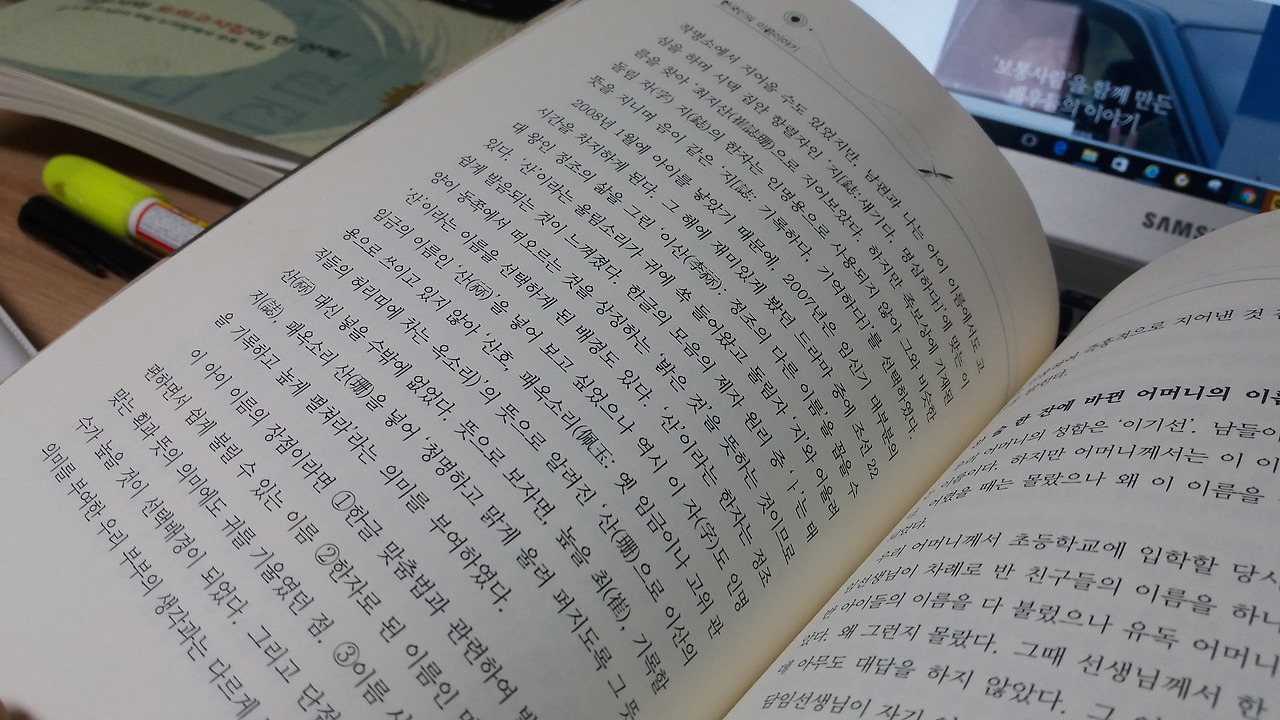 한국인의 이름이야기
작명소에서 지어올 수도 있었지만, 남편과 나는 아이 이름에서도 고
심을 하며 시댁 집안 항렬자인 '지(誌:새기다, 명심하다)'에 맞는 이
름을 찾아 '최지산(崔誌珊)으로 지어보았다. 하지만 족보상에 기재된
돌림 자(字) 지(誌)의 한자는 인명용으로 사용되지 않아 그와 비슷한
뜻을 지니며 음이 같은 '지(誌: 기록하다, 기억하다)'를 선택하였다.
2008년 1월에 아이를 낳았기 때문에, 2007년은 임신기 대부분의
시간을 차지하게 된다. 그 해에 재미있게 봤던 드라마 중에 조선 22
대 왕인 정조의 삶을 그린 '이산(李祘): 정조의 다른 이름'을 꼽을 수
있다. '산'이라는 울림소리가 귀에 쏙 들어왔고 돌림자 '지'와 어울려
쉽게 발음되는 것이 느껴졌다. 한글의 모음의 제자 원리 중 'ㅏ'는 태
양이 동쪽에서 떠오르는 것을 상징하는 '밝은 것'을 뜻하는 것이므로
'산'이라는 이름을 선택하게 된 배경도 있다. '산'이라는 한자는 정조
임금의 이름인 '산(祘)'을 넣어 보고 싶었으나 역시 이 자(字)도 인명
용으로 쓰이고 있지 않아 '산호, 패옥소리(佩玉: 옛 임금이나 고위 관
직들의 허리띠에 차는 옥소리)'의 뜻으로 알려진 '산(珊)으로 이산의
산(祘) 대신 넣을 수밖에 없었다. 뜻으로 보자면, 높을 최(崔), 기록할
지(誌), 패옥소리 산(珊)을 넣어 '청명하고 맑게 울려 퍼지도록 그 뜻
을 기록하고 높게 펼쳐라'라는 의미를 부여하였다.
이 아이 이름의 장점이라면 ①한글 맞춤법과 관련하여 발
편하면서 쉽게 불릴 수 있는 이름 ②한자로 된 이름인 만
맞는 획과 뜻의 의미에도 귀를 기울였던 점. ③이름 사
수가 높은 것이 선택배경이 되었다. 그리고 단점
의미를 부여한 우리 부부의 생각과는 다르게
즉흥적으로 지어낸 것
한 잔에 바뀐 어머니의 이름
어머니의 성함은 '이기선'. 남들이
이름이다. 하지만 어머니께서는 이 이
어렸을 때는 몰랐으나 왜 이 이름을
우리 어머니께서 초등학교에 입학할 당시
담임선생님이 차례로 반 친구들의 이름을 하나
반 아이들의 이름을 다 불렀으나 유독 어머니
았다. 왜 그런지 몰랐다. 그때 선생님께서 한
데 아무도 대답을 하지 않았다. 그
담임선생님이 자기
'보통사람'을 함께 만든
배우들의 이야기
SAMS